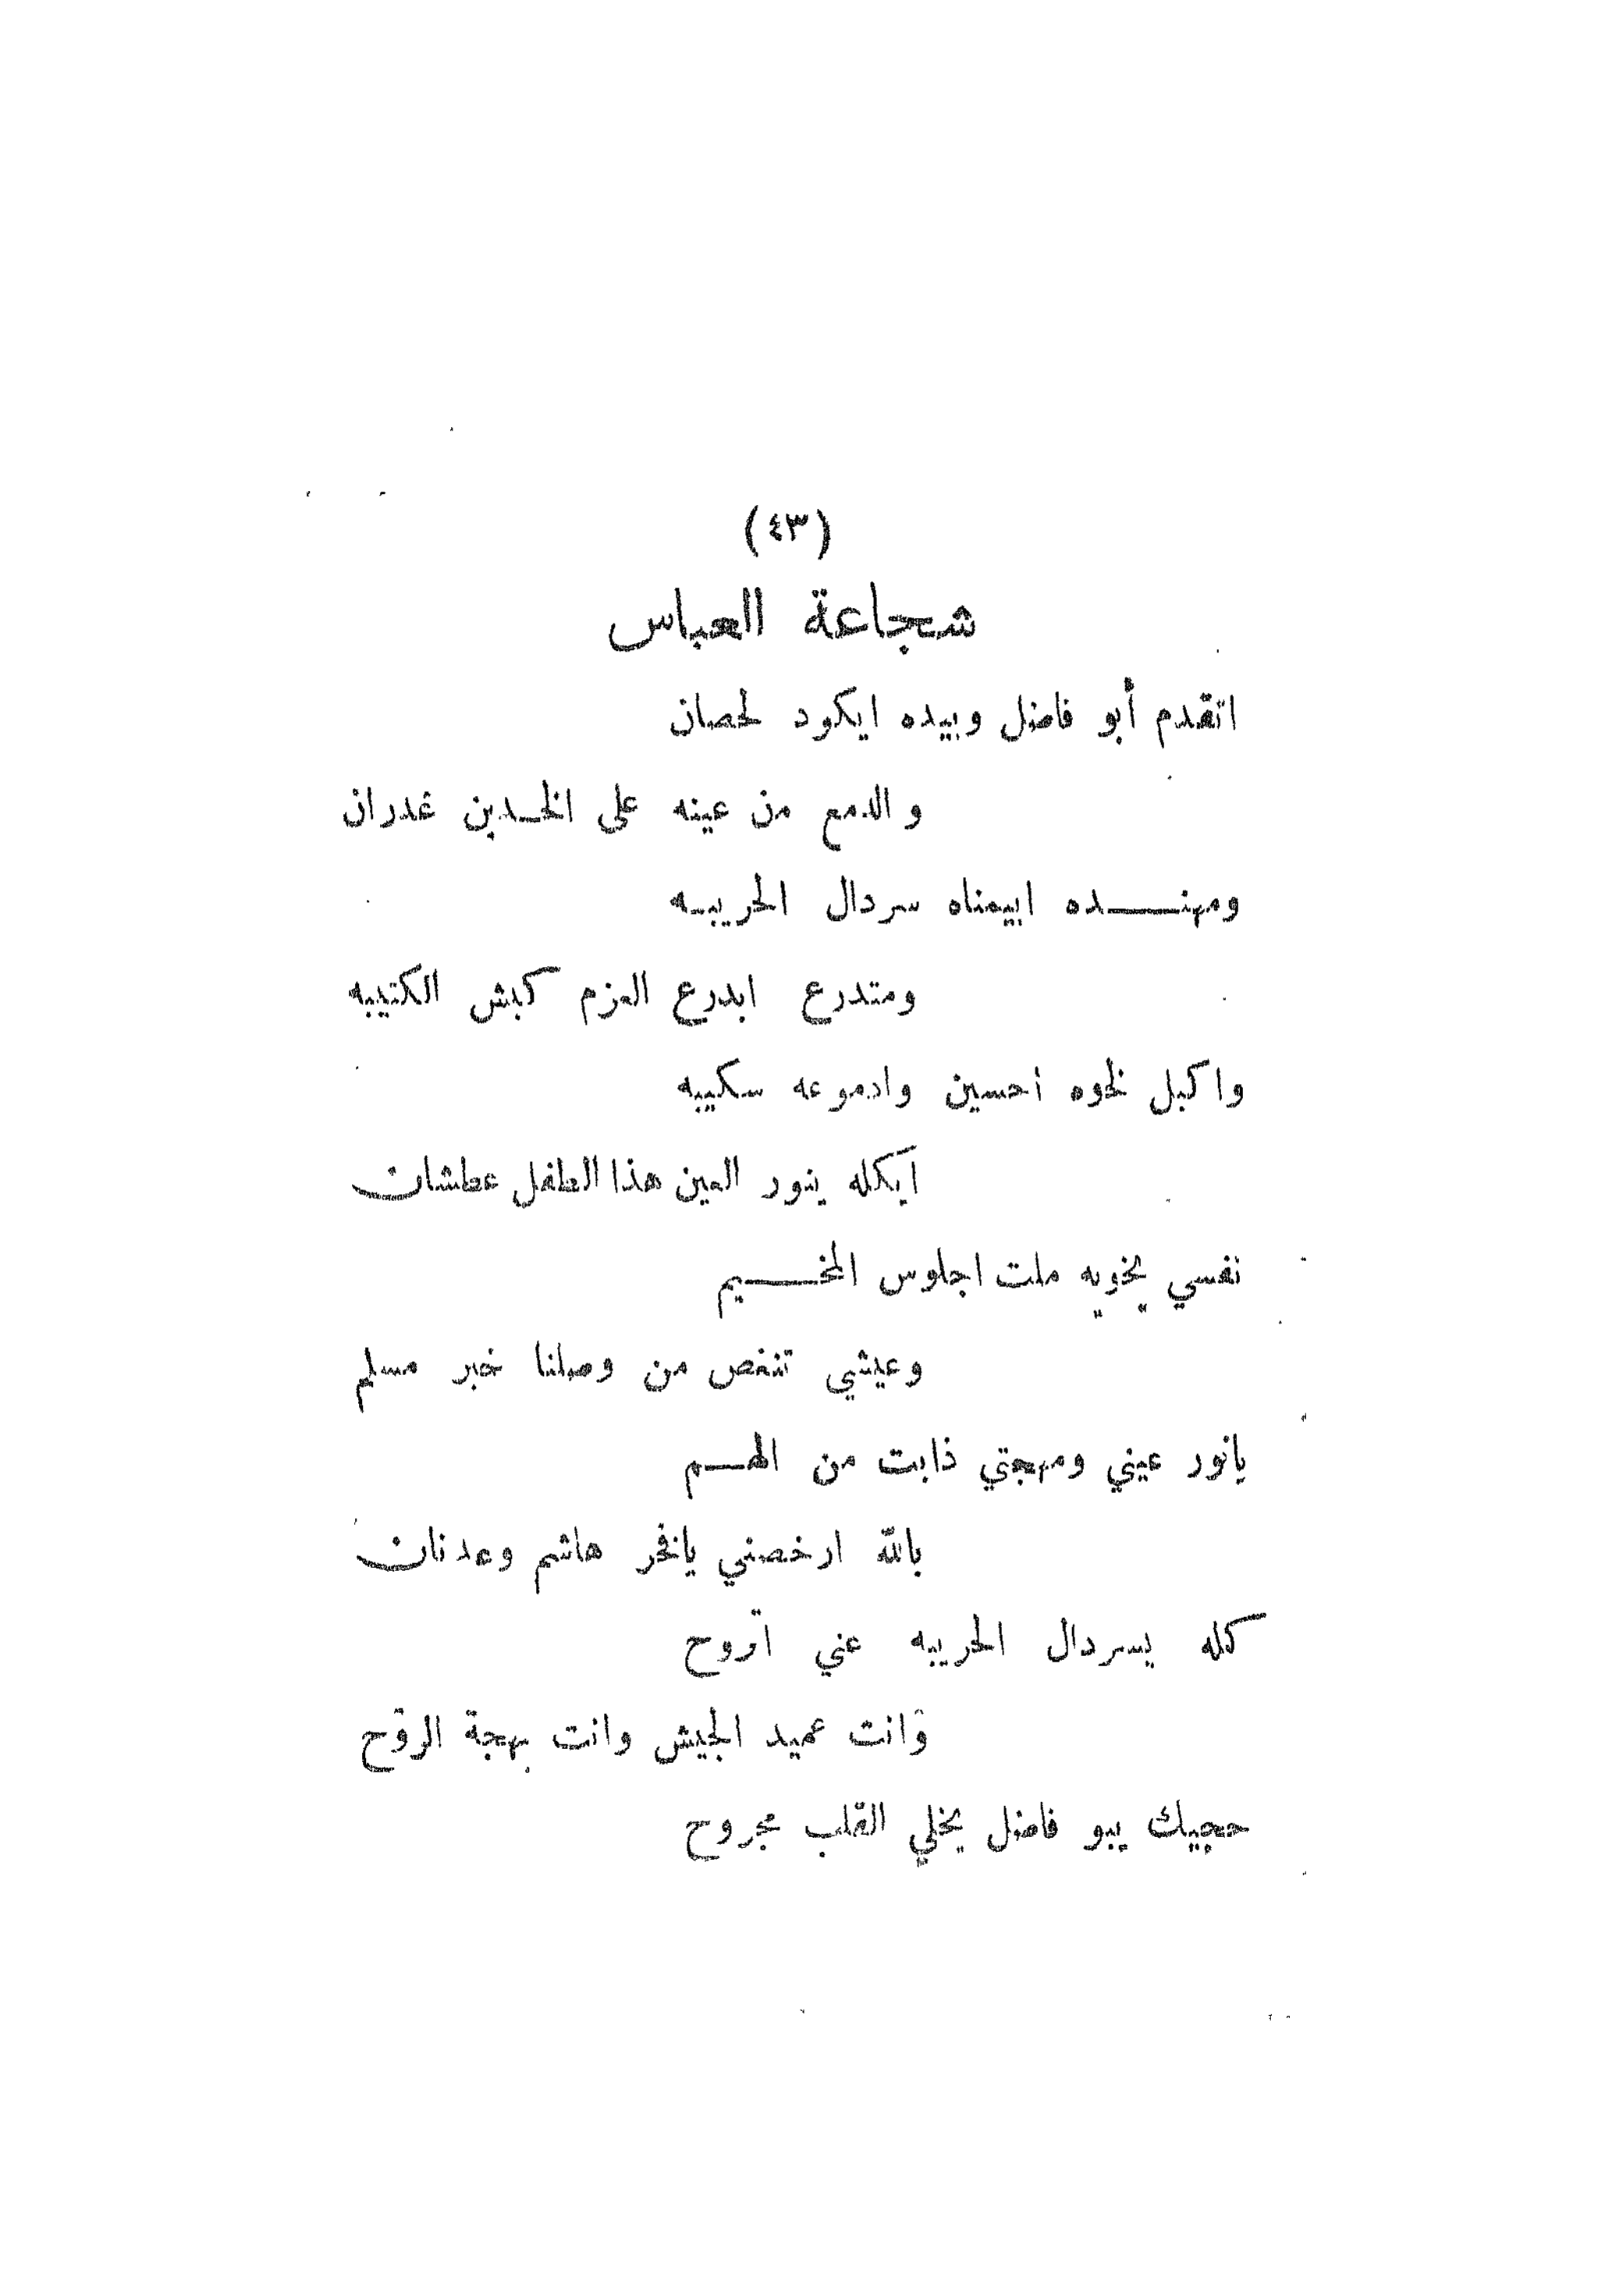 (٤٣)
شجاعة العباس
اتقدم أبو فاضل وبيده ايكود لحصان
والدمع من عينه على الخدين غدران
ومهنده ابيمناه سردال الحريبه
ومتدرع ابدرع العزم كبش الكتيبه
واكبل لخوه احسين وادموعه سكيبه
ايكله ينور العين هذا الطفل عطشان
نفسي يخويه ملت اجلوس المخيم
وعيشي تنغص من وصلنا خبر مسلم
يانور عيني ومهجتي ذابت من الهم
بالله ارخصني يافخر هاشم وعدنان
كله يسردال الحريبه عني اتروح
وانت عميد الجيش وانت بهجة الروح
حجيك يبو فاضل يخلي القلب مجروح